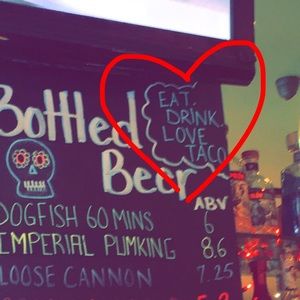 Bottled
Beer
EAT,
DRINK,
LOVE
TACO
ABV
DOGFISH 60 MINS 6
IMPERIAL PUMKING 8.6
LOOSE CANNON 7.25